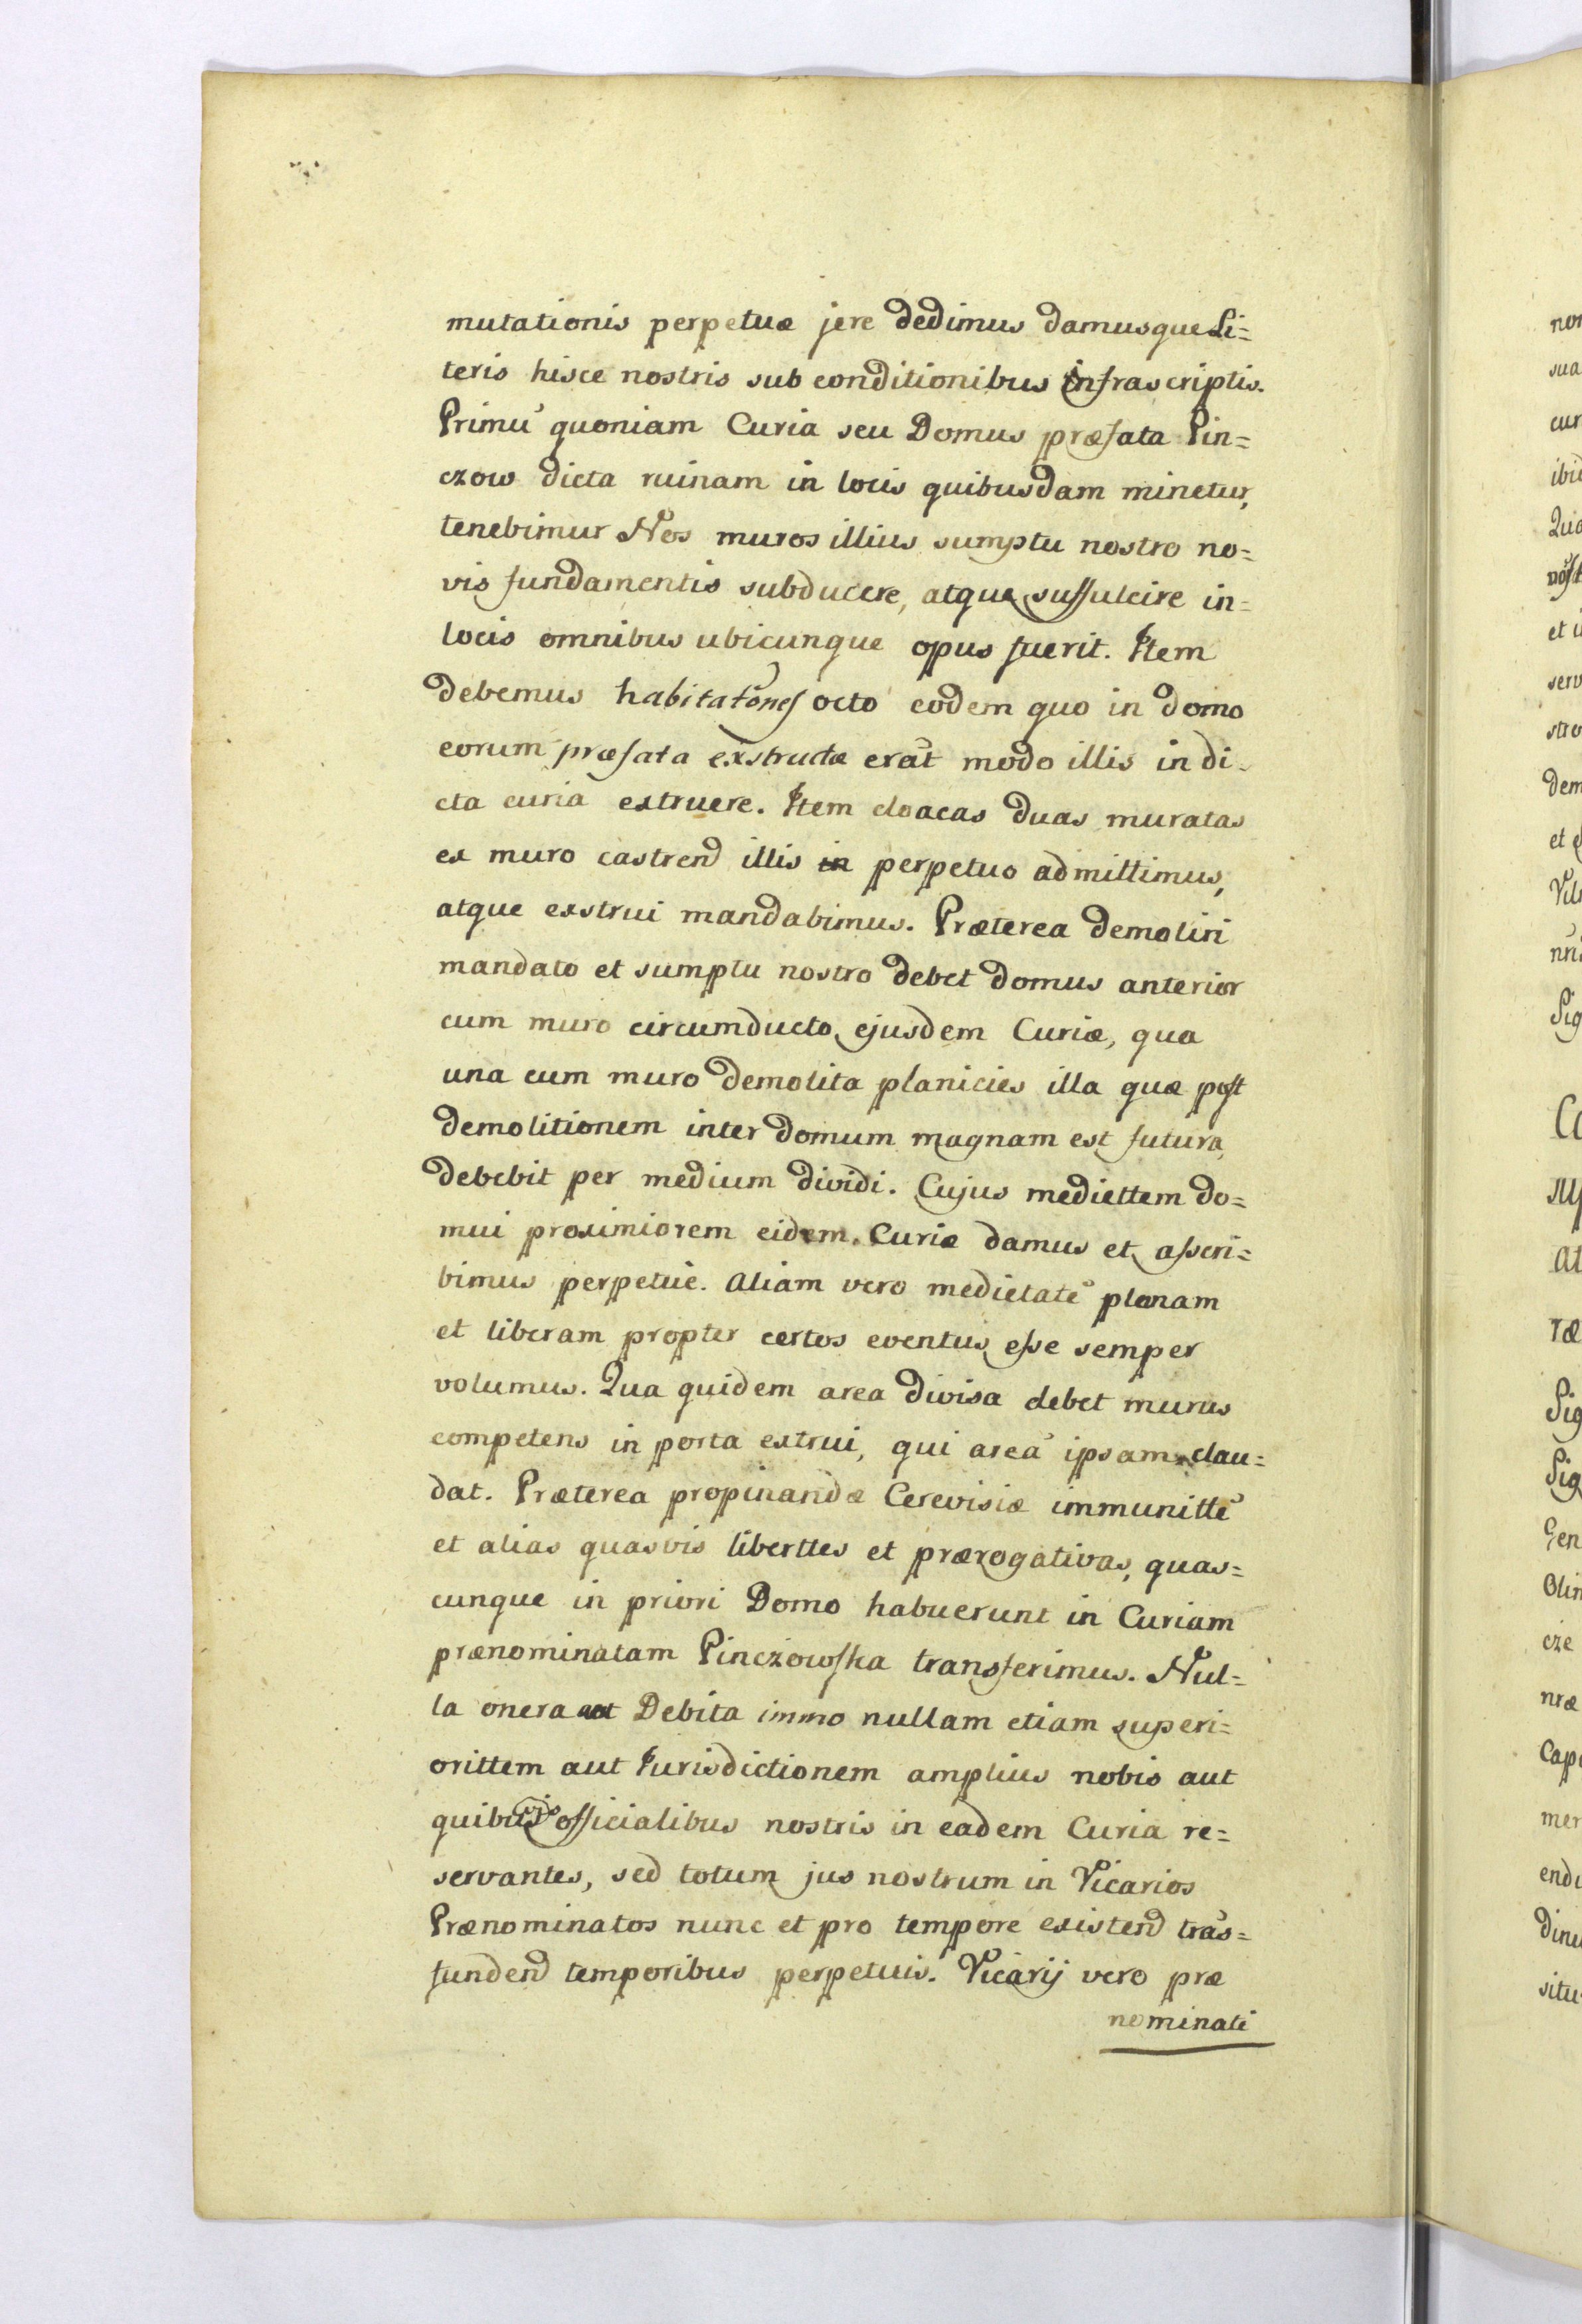 mutationis perpetuæ jere dedimus damusque Li=
teris hisce nostris sub conditionibus infrascriptis.
Primū quoniam Curia seu Domus præfata Pin=
czow dicta ruinam in locis quibusdam minetur,
tenebimur Nos muros illius sumptu nostro no=
vis fundamentis subducere, atque suffulcire in=
locis omnibus ubicunque opus fuerit. Item
debemus habitatōnes octo eodem quo in domo
eorum præfata exstructæ erāt modo illis in di=
cta curia extruere. Item cloacas duas muratas
ex muro castrend illis in perpetuo admittimus,
atque exstrui mandabimus. Præterea demoliri
mandato et sumptu nostro debet domus anterior
cum muro circumducto ejusdem Curiæ, qua
una cum muro demolita planicies illa quæ post
demolitionem inter domum magnam est futura,
debebit per medium dividi. Cujus mediettem do=
mui proximiorem eidem Curiæ damus et asscri=
bimus perpetue. Aliam vero medietatē planam
et liberam propter certos eventus esse semper
volumus. Qua quidem area divisa debet murus
competens in porta extrui, qui areā ipsam clau=
dat. Præterea propinandæ Cerevisiæ immunittē
et alias quasvis liberttes et prærogativas, quas=
cunque in priori Domo habuerunt in Curiam
prænominatam Pinczowska transferimus. Nul=
la onera aut Debita immo nullam etiam superi=
orittem aut Jurisdictionem amplius nobis aut
quibusvis officialibus nostris in eadem Curia re=
servantes, sed totum jus nostrum in Vicarios
Prænominatos nunc et pro tempore existend trās=
fundend temporibus perpetuis. Vicarij vero præ
nominati